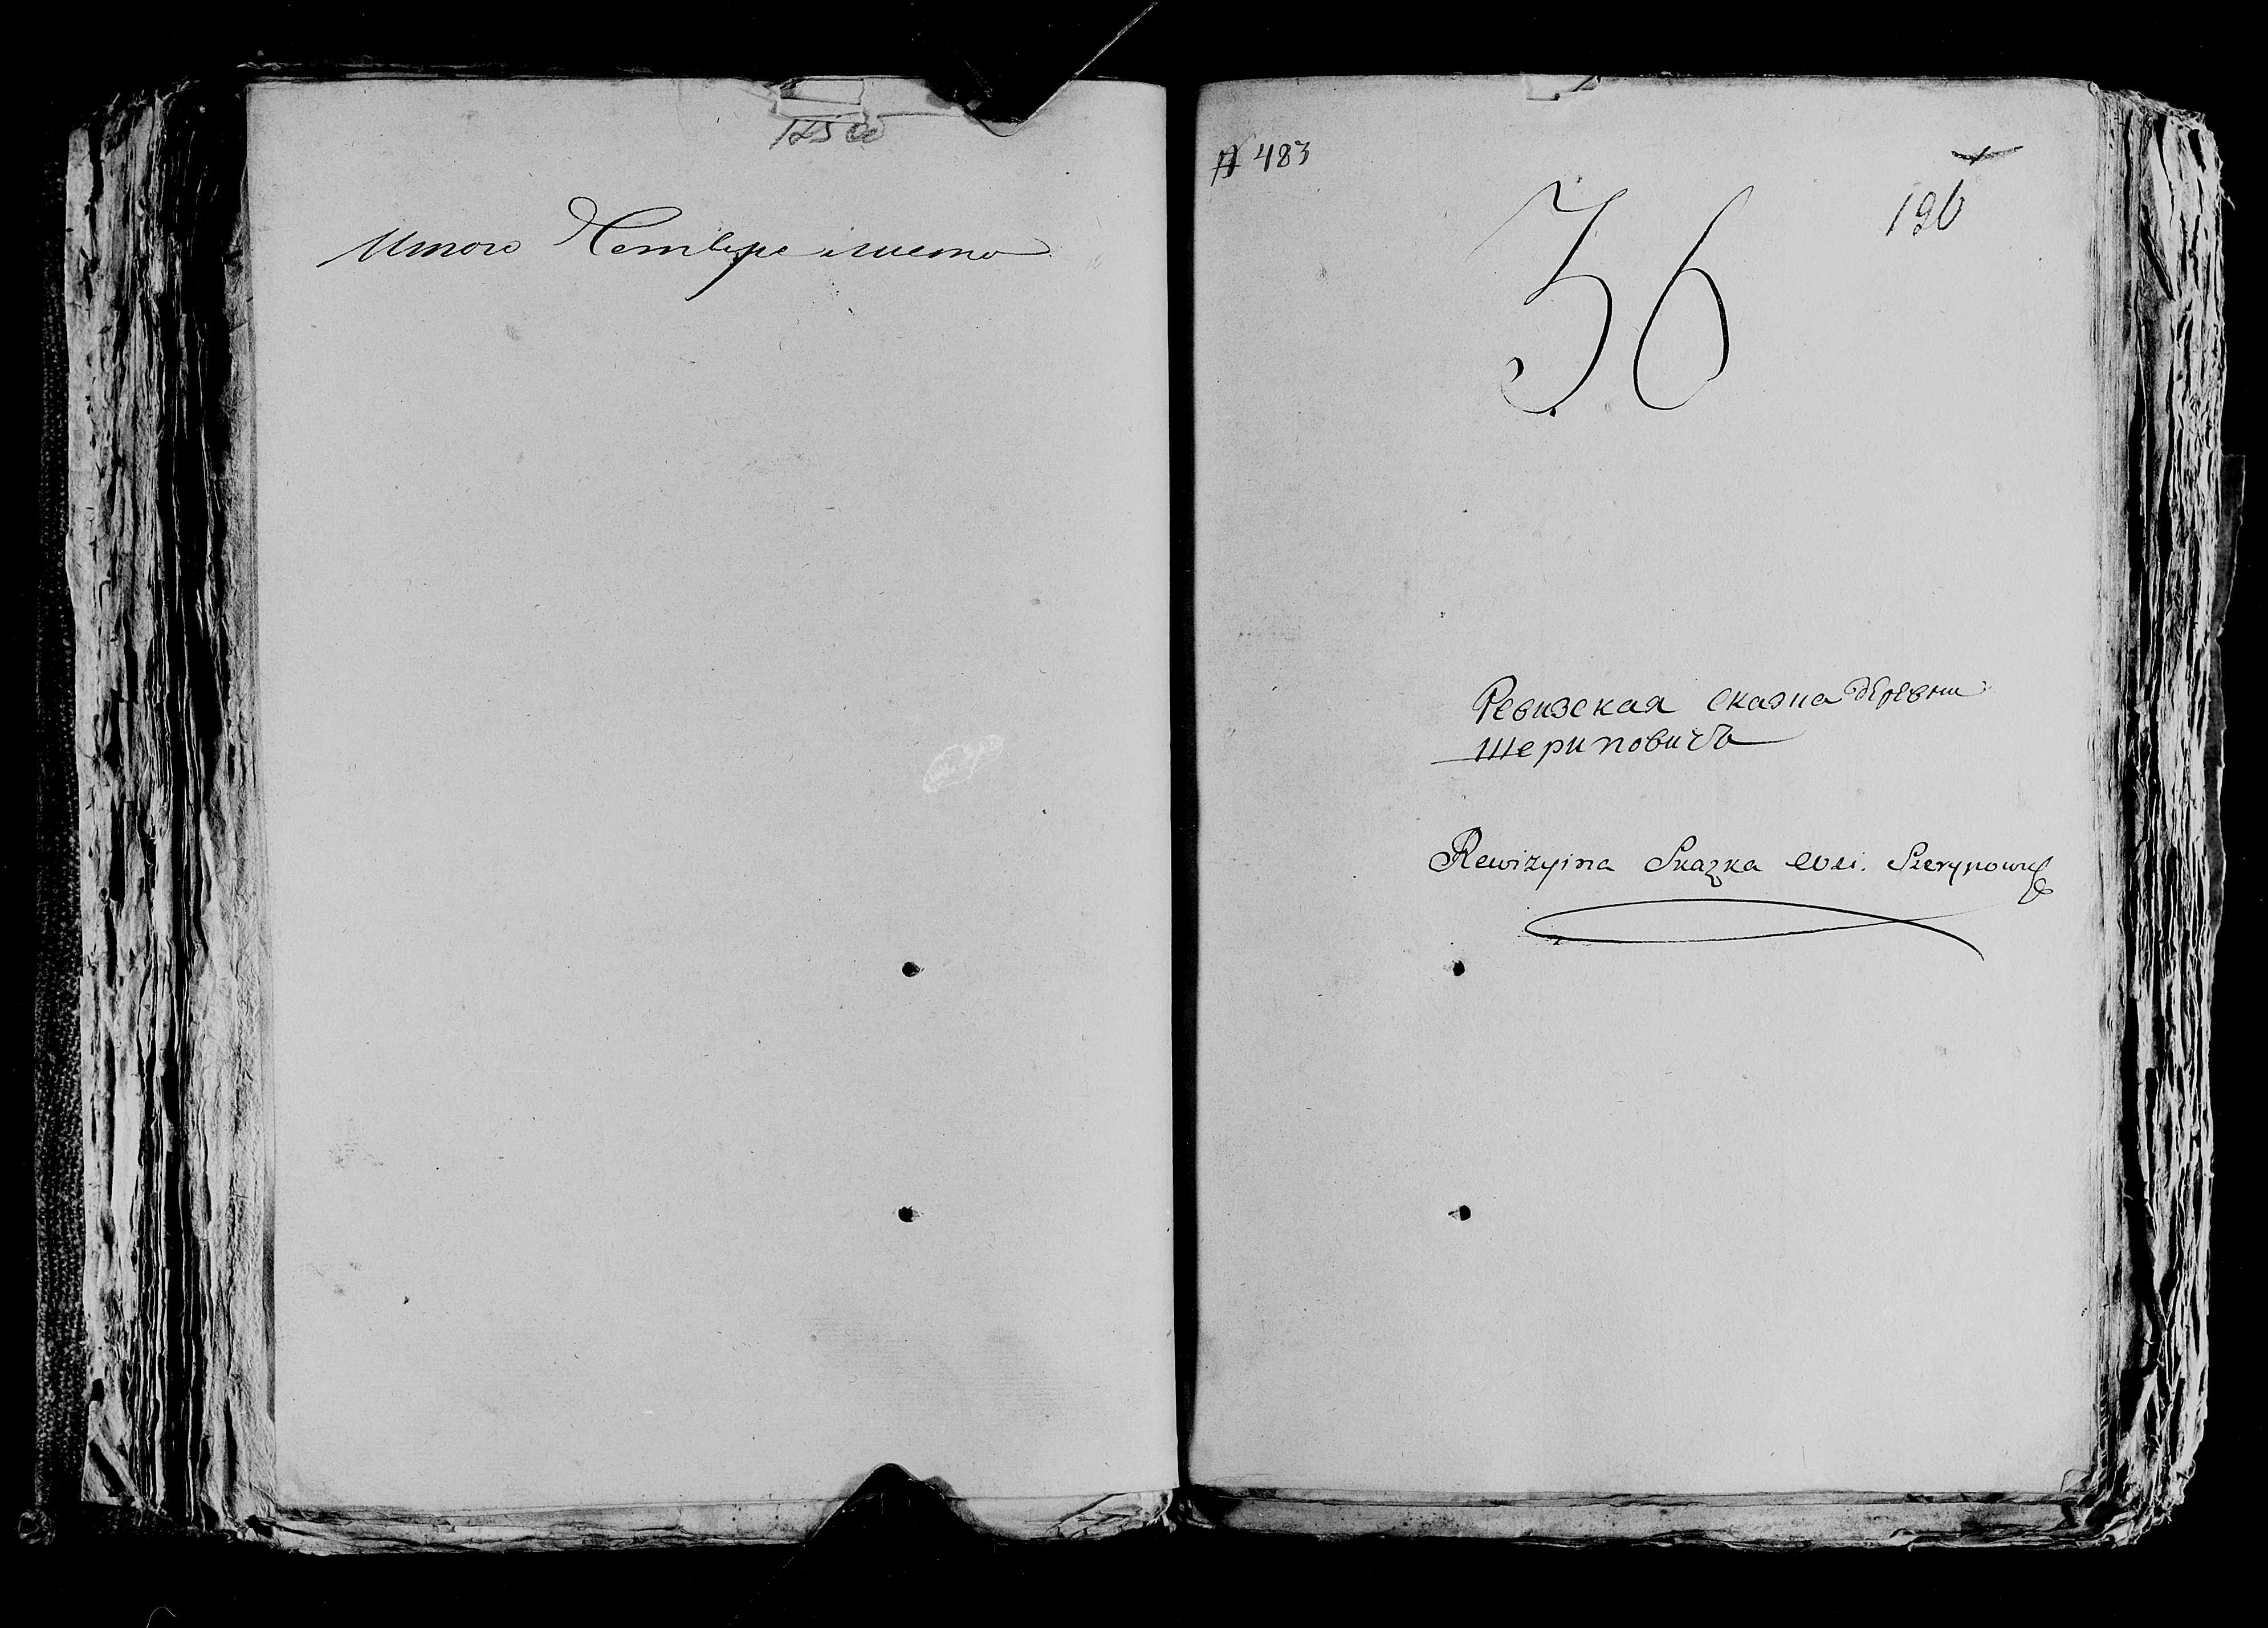 125 об
Итого Четвере листа
№ 483
196
36
Ревизская сказка деревни
Шериповичъ
Rewizyina Skazka wsi. Szerypowicz